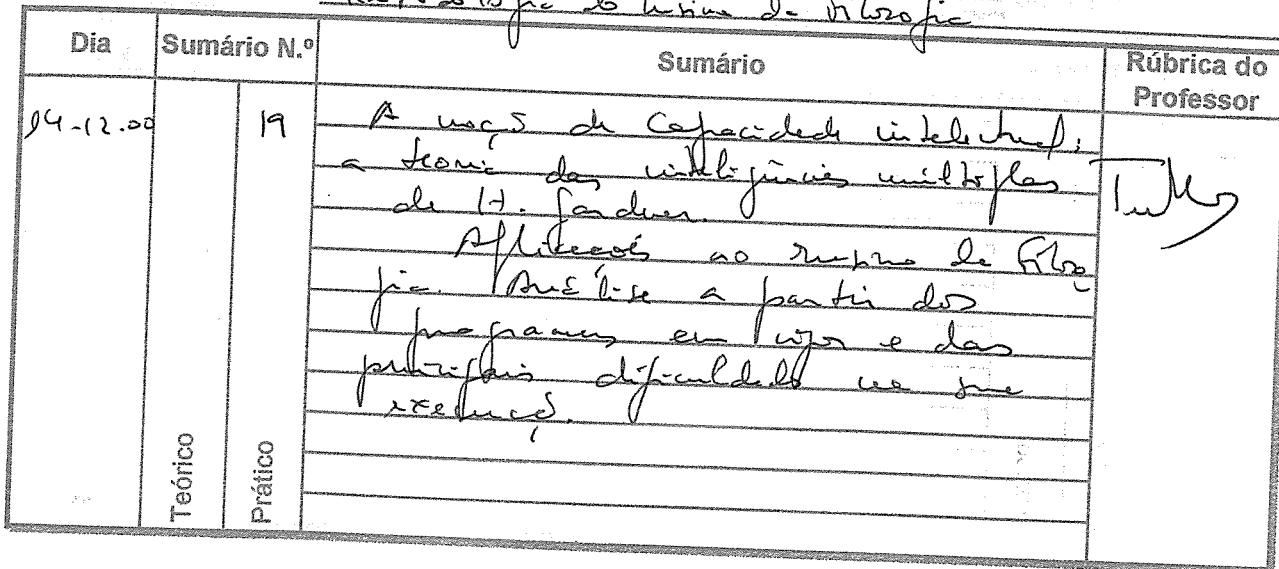 Metodologia do Ensino da Filosofia
Dia
Sumário N.º
Sumário
Rúbrica do
Professor
14-12.00
19
A noção de Capacidade intelectual:
a teoria das inteligências múltiplas
de H. Gardner.
Aplicações ao ensino da Filoso
fia. Análise a partir dos
programas em vigor e das
principais dificuldades na sua
execução.
Teórico
Prático